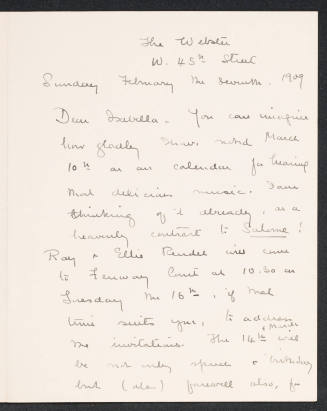 The Webster
W. 45th Street
Sunday February the seventh. 1909
Dear Isabella - You can imagine
how gladly I have noted March
10th on our calendar for hearing
that delicious music. I am
thinking of it already, as a
heavenly contrast to Salome!
Ray & Ellis will come
to Fenway Court at 10.30 on
Tuesday the 16th, if that
time suits you, to address
the invitations. The 14th will
be not only speech & birthday
but (alas) farewell also, for